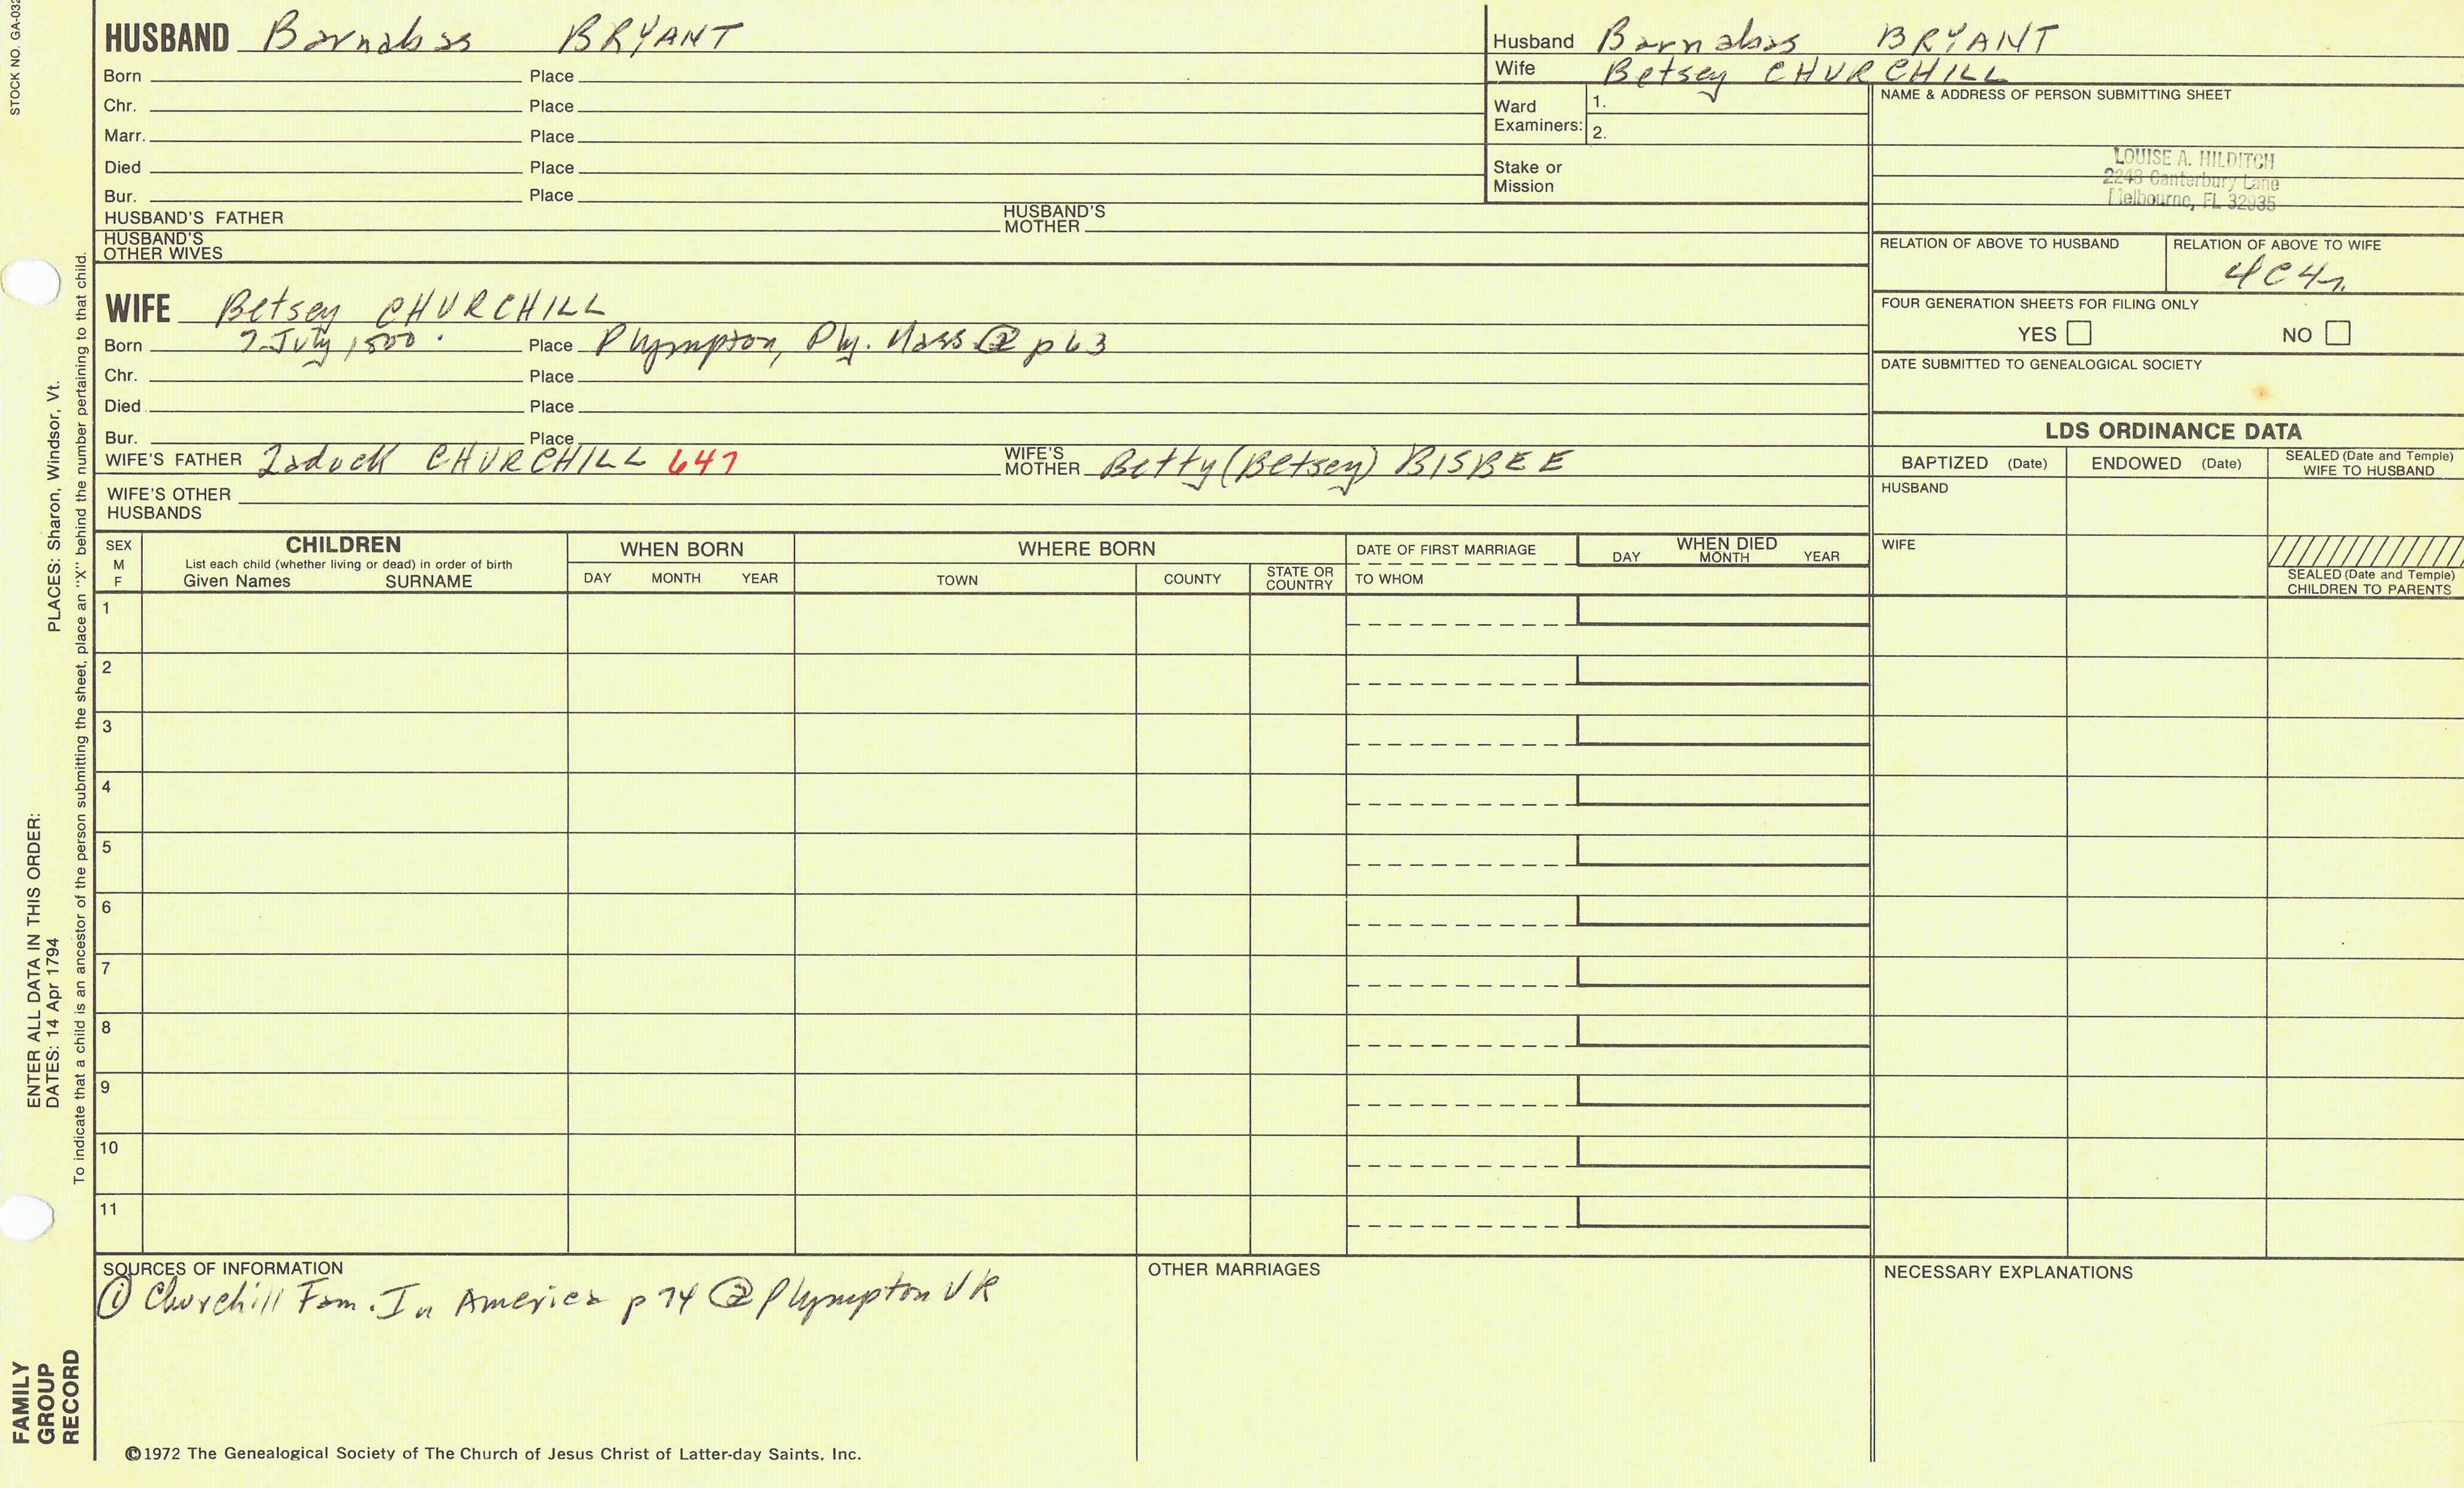 STOCK NO. GA-032
HUSBAND Barnabas BRYANT
Born Place
Chr. Place
Marr. Place
Died Place
Bur. Place
HUSBAND'S FATHER HUSBAND'S MOTHER
HUSBAND'S OTHER WIVES
Husband Barnabas BRYANT
Wife Betsey CHURCHILL
Ward Examiners: 1.
2.
Stake or Mission
NAME & ADDRESS OF PERSON SUBMITTING SHEET
LOUISE A. HILDITCH
2243 Canterbury Lane
Melbourne, FL 32935
RELATION OF ABOVE TO HUSBAND
RELATION OF ABOVE TO WIFE
4C4r.
FOUR GENERATION SHEETS FOR FILING ONLY
YES NO
DATE SUBMITTED TO GENEALOGICAL SOCIETY
WIFE Betsey CHURCHILL
Born 7 July 1800 Place Plympton, Ply. Mass ② p 63
Chr. Place
Died Place
Bur. Place
WIFE'S FATHER Zadock CHURCHILL 647 WIFE'S MOTHER Betty (Betsey) BISBEE
WIFE'S OTHER HUSBANDS
LDS ORDINANCE DATA
BAPTIZED (Date) ENDOWED (Date) SEALED (Date and Temple) WIFE TO HUSBAND
HUSBAND
WIFE
SEALED (Date and Temple) CHILDREN TO PARENTS
SEX M F
CHILDREN
List each child (whether living or dead) in order of birth
Given Names SURNAME
WHEN BORN
DAY MONTH YEAR
WHERE BORN
TOWN COUNTY STATE OR COUNTRY
DATE OF FIRST MARRIAGE
TO WHOM
WHEN DIED
DAY MONTH YEAR
1
2
3
4
5
6
7
8
9
10
11
SOURCES OF INFORMATION
① Churchill Fam. In America p 74 ② Plympton VR
OTHER MARRIAGES
NECESSARY EXPLANATIONS
©1972 The Genealogical Society of The Church of Jesus Christ of Latter-day Saints, Inc.
FAMILY GROUP RECORD
ENTER ALL DATA IN THIS ORDER:
DATES: 14 Apr 1794 PLACES: Sharon, Windsor, Vt.
To indicate that a child is an ancestor of the person submitting the sheet, place an "X" behind the number pertaining to that child.